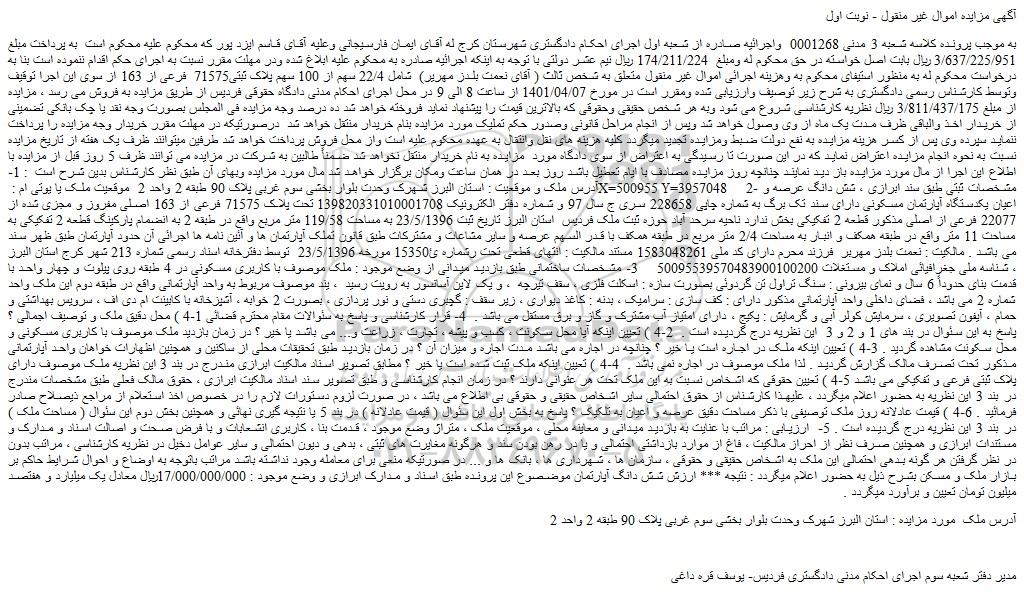 آگهی مزایده اموال غیر منقول - نوبت اول
به موجب پرونده کلاسه شعبه 3 مدنی 0001268 واجرائیه صادره از شعبه اول اجرای احکام دادگستری شهرستان کرج له آقای ایمان فارسیجانی وعلیه آقای قاسم ایزد پور که محکوم علیه محکوم است به پرداخت مبلغ
3/637/225/951 ریال بابت اصل خواسته در حق محکوم له ومبلغ 174/211/224 ریال نیم عشر دولتی با توجه به اینکه اجرائیه صادره به محکوم علیه ابلاغ شده ودر مهلت مقرر نسبت به اجرای حکم اقدام ننموده است بنا به
درخواست محکوم له به منظور استیفای محکوم به وهزینه اجرائی اموال غیر منقول متعلق به شخص ثالث ( آقای نعمت بلدز مهریر) شامل 22/4 سهم از 100 سهم پلاک ثبتی71575 فرعی از 163 از سوی این اجرا توقیف
وتوسط کارشناس رسمی دادگستری به شرح زیر توصیف وارزیابی شده ومقرر است در مورخ 1401/04/07 از ساعت 8 الی 9 در محل اجرای احکام مدنی دادگاه حقوقی فردیس از طریق مزایده به فروش می رسد ، مزایده
از مبلغ 3/811/437/175 ریال نظریه کارشناسی شروع می شود وبه هر شخص حقیقی وحقوقی که بالاترین قیمت را پیشنهاد نماید فروخته خواهد شد ده درصد وجه مزایده فی المجلس بصورت وجه نقد یا چک بانکی تضمینی
از خریدار اخذ والباقی ظرف مدت یک ماه از وی وصول خواهد شد وپس از انجام مراحل قانونی وصدور حکم تملیک مورد مزایده بنام خریدار منتقل خواهد شد درصورتیکه در مهلت مقرر خریدار وجه مزایده را پرداخت
ننماید سپرده وی پس از کسر هزینه مزایده به نفع دولت ضبط ومزایده تجدید میگردد کلیه هزینه های نقل وانتقال به عهده محکوم علیه است واز محل فروش پرداخت خواهد شد طرفین میتوانند ظرف یک هفته از تاریخ مزایده
نسبت به نحوه انجام مزایده اعتراض نماید که در این صورت تا رسیدگی به اعتراض از سوی دادگاه مورد مزایده به نام خریدار منتقل نخواهد شد ضمناً طالبین به شرکت در مزایده می توانند ظرف 5 روز قبل از مزایده با
اطلاع این اجرا از مال مورد مزایده باز دید نمایند چنانچه روز مزایده مصادف با ایام تعطیل باشد روز بعد در همان ساعت ومکان برگزار خواهد شد مال مورد مزایده وبهای آن طبق نظر کارشناس بدین شرح است : 1-
مشخصات ثبتی طبق سند ابرازی ، شش دانگ عرصه و - 2 X=500955 Y=3957048آدرس ملک و موقعیت : استان البرز شهرک وحدت بلوار بخشی سوم غربی پلاک 90 طبقه 2 واحد 2 موقعیت ملک یا یوتی ام :
اعیان یکدستگاه آپارتمان مسکونی دارای سند تک برگ به شماره چاپی 228658 سری ج سال 97 و شماره دفتر الکترونیک 139820331010001708 تحت پلاک 71575 فرعی از 163 اصلی مفروز و مجزی شده از
22077 فرعی از اصلی مذکور قطعه 2 تفکیکی بخش ندارد ناحیه سرحد آباد حوزه ثبت ملک فردیس استان البرز تاریخ ثبت 23/5/1396 به مساحت 119/58 متر مربع واقع در طبقه 2 به انضمام پارکینگ قطعه 2 تفکیکی به
مساحت 11 متر واقع در طبقه همکف و انبار به مساحت 2/4 متر مربع در طبقه همکف با قدر السهم عرصه و سایر مشاعات و مشترکات طبق قانون تملک آپارتمان ها و آئین نامه ها اجرائی آن حدود آپارتمان طبق ظهر سند
می باشد . مالکیت : نعمت بلدز مهریر فرزند محرم دارای کد ملی 1583048261 مستند مالکیت : انتهای قطعی تحت رشماره ی15350 مورخه 23/5/1396 توسط دفترخانه اسناد رسمی شماره 213 شهر کرج استان البرز
، شناسه ملی جغرافیائی املاک و مستغلات 50095539570483900100200 3- مشخصات ساختمانی طبق بازدید میدانی از وضع موجود : ملک موصوف با کاربری مسکونی در 4 طبقه روی پیلوت و چهار واحد با
قدمت بنای حدوداً 6 سال و نمای بیرونی : سنگ تراول تن گردوئی بصورت سازه : اسکلت فلزی ، سقف تیرچه ، و یک لاین آسانسور به رویت رسید ، بند موصوف مربوط به واحد آپارتمانی واقع در طبقه دوم این ملک واحد
شماره 2 می باشد ، فضای داخلی واحد آپارتمانی مذکور دارای : کف سازی : سرامیک ، بدنه : کاغذ دیواری ، زیر سقف : گچبری دستی و نور پردازی ، بصورت 2 خوابه ، آشپزخانه با کابینت ام دی اف ، سرویس بهداشتی و
حمام ، آیفون تصویری ، سرمایش کولر آبی و گرمایش : پکیج ، دارای امتیاز آب مشترک و گاز و برق مستقل می باشد . 4- قرار کارشناسی و پاسخ به سئوالات مقام محترم قضائی 1-4 ) محل دقیق ملک و توصیف اجمالی ؟
پاسخ به این سئوال در بند های 1 و 2 و 3 این نظریه درج گردیده است . 2-4 ) تعیین اینکه آیا محل سکونت ، کسب و پیشه ، تجارت ، زراعت و... می باشد یا خیر ؟ در زمان بازدید ملک موصوف با کاربری مسکونی و
محل سکونت مشاهده گردید . 3-4 ) تعیین اینکه ملک در اجاره است یا خیر ؟ چنانچه در اجاره می باشد مدت اجاره و میزان آن ؟ در زمان بازدید طبق تحقیقات محلی از ساکنین و همچنین اظهارات خواهان واحد آپارتمانی
مذکور تحت تصرف مالک گزارش گردید . لذا ملک موصوف در اجاره نمی باشد . 4-4 ) تعیین اینکه ملک ثبت شده است یا خیر ؟ مطابق تصویر اسناد مالکیت ابرازی مندرج در بند 3 این نظریه ملک موصوف دارای
پلاک ثبتی فرعی و تفکیکی می باشد 5-4 ) تعیین حقوقی که اشخاص نسبت به این ملک تحت هر عنوانی دارند ؟ در زمان انجام کارشناسی و طبق تصویر سند اسناد مالکیت ابرازی ، حقوق مالک فعلی طبق مشخصات مندرج
در بند 3 این نظریه به حضور اعلام میگردد ، علیهذا کارشناس از حقوق احتمالی سایر اشخاص حقیقی و حقوقی بی اطلاع می باشد ، در صورت لزوم دستورات لازم را در خصوص اخذ استعلام از مراجع ذیصلاح صادر
فرمائید . 6-4 ) قیمت عادلانه روز ملک توصیفی با ذکر مساحت دقیق عرصه و اعیان به تفکیک ؟ پاسخ به بخش اول این سئوال ( قیمت عادلانه ) در بند 5 یا نتیجه گیری نهائی و همچنین بخش دوم این سئوال ( مساحت ملک )
در بند 3 این نظریه درج گردیده است . 5- ارزیابی : مراتب با عنایت به بازدید میدانی و معاینه محلی ، موقعیت ملک ، متراژ وضع موجود ، قدمت بنا ، کاربری انشعابات و با فرض صحت و اصالت اسناد و مدارک و
مستندات ابرازی و همچنین صرف نظر از احراز مالکیت ، فاغ از موارد بازداشتی احتمالی و یا در رهن بودن سند و هرگونه مغایرت های ثبتی ، بدهی و دیون احتمالی و سایر عوامل دخیل در نظریه کارشناسی ، مراتب بدون
در نظر گرفتن هر گونه بدهی احتمالی این ملک به اشخاص حقیقی و حقوقی ، سازمان ها ، شهرداری ها ، بانک ها و ... در صورتیکه منعی برای معامله وجود نداشته باشد مراتب باتوجه به اوضاع و احوال شرایط حاکم بر
بازار ملک و مسکن بشرح ذیل به حضور اعلام میگردد : نتیجه *** ارزش شش دانگ آپارتمان موضصوع این پرونده طبق اسناد و مدارک ابرازی و وضع موجود : 17/000/000/000ریال معادل یک میلیارد و هفتصد
میلیون تومان تعیین و برآورد میگردد .
آدرس ملک مورد مزایده : استان البرز شهرک وحدت بلوار بخشی سوم غربی پلاک 90 طبقه 2 واحد 2
مدیر دفتر شعبه سوم اجرای احکام مدنی دادگستری فردیس- یوسف قره داغی